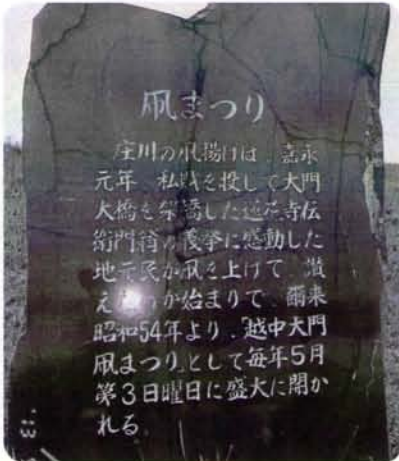 凧まつり
庄川の凧揚げは、嘉永
元年、私財を投して大門
大橋を架橋した 寺伝
衛門 の義挙に感動した
地元民が凧を上げて、讃
え のが始まりで、爾来
昭和54年より、「越中大門
凧まつり」として毎年5月
第3日曜日に盛大に開か
れる。
'13